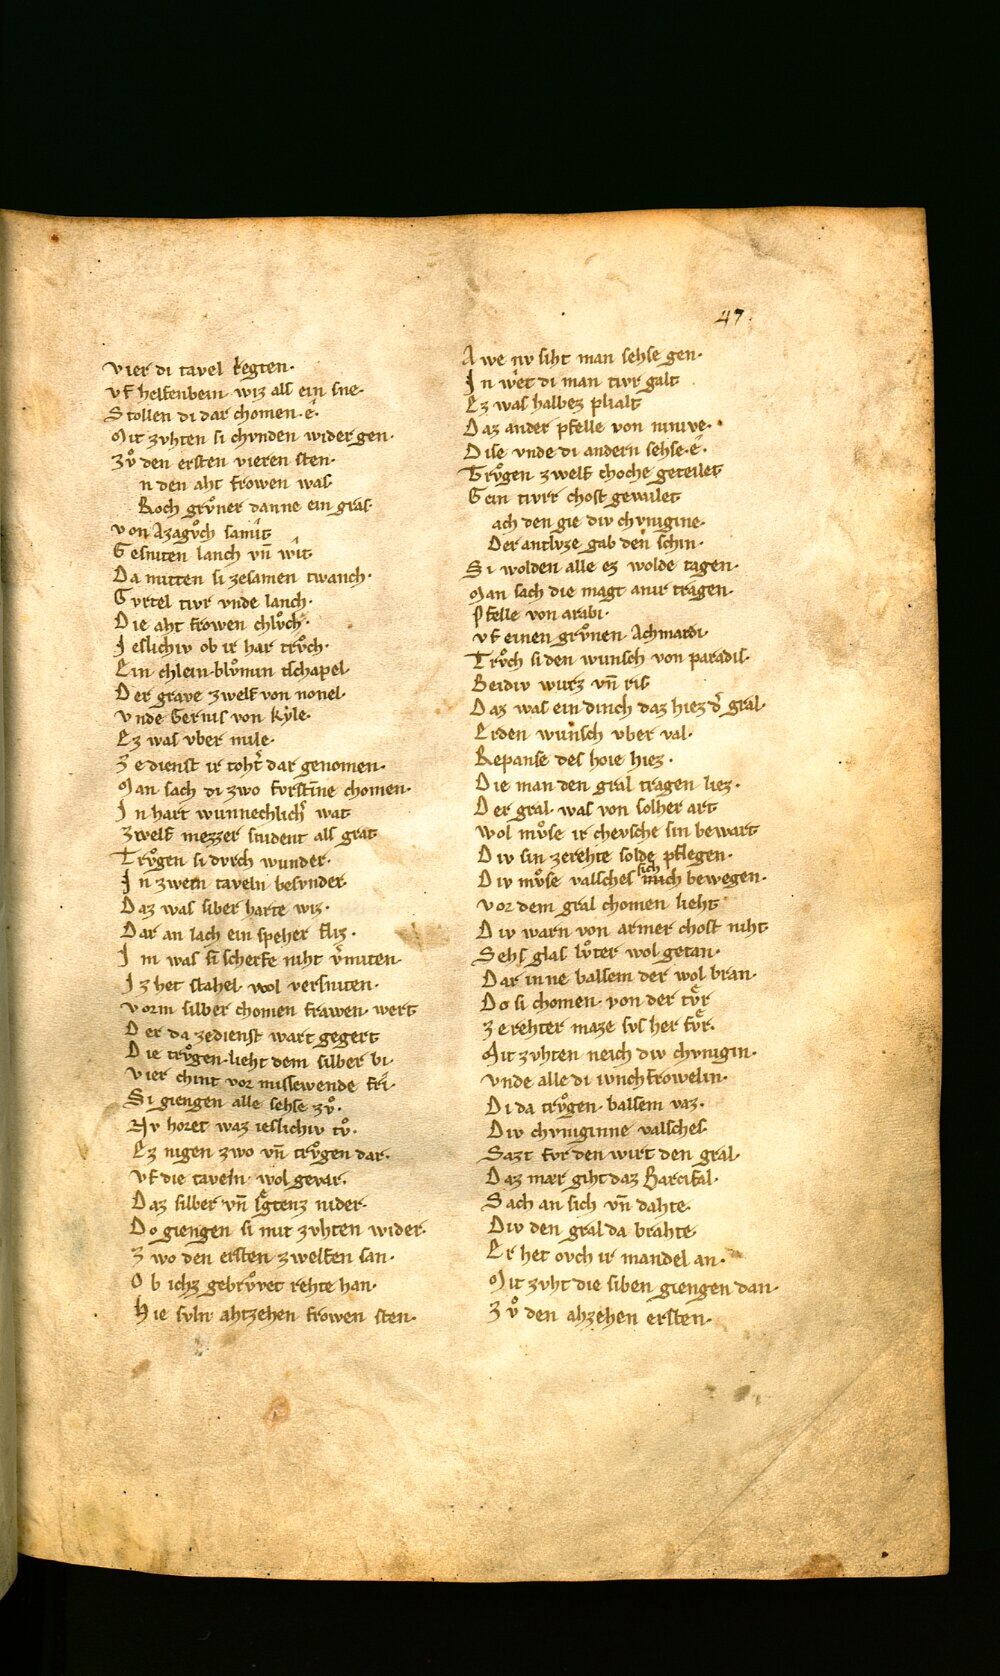 47.
vier di tavel legten·
vf helfenbein wiz als ein sne·
Stollen di dar chomen·e·
Mit zvhten si chvnden wider gen·
Zvͦ den ersten vieren sten·
n den aht frowen was
Roch grvͦner danne ein gras·
von Azagvͦch samît
Gesniten lanch vn̄ wît
Da mitten si zesamen twanch·
Gvrtel tivr vnde lanch·
Die aht frowen chlvͦch·
Jeslichiv ob ir har trvͦch·
Ein chlein blvͦmin tschapel
Der grave zwelf von nonel
vnde Gernis von kyle·
Ez was vber mile·
Ze dienst ir toht̄ dar genomen·
Man sach di zwo fvrstīne chomen·
Jn hart wunnechlich̄ wat
zwelf mezzer snident als grat
Trvͦgen si dvrch wunder·
Jn zwein taveln besvnder·
Daz was silber harte wiz·
Dar an lach ein speher fliz·
Jm was si scherfe niht v̄miten·
Jz het stahel wol versniten·
vorm silber chomen frawen wert
Der da zedienst wart gegert
Die trvͦgen lieht dem silber bi·
vier chint vor missewende fri·
Si giengen alle sehse zvͦ·
Nv horet waz ieslichiv tvͦ·
Ez nigen zwo vn̄ trvͦgen dar·
vf die taveln wol gevar·
Daz silber vn̄ legtenz nider·
Do giengen si mit zvhten wider·
Zwo den ersten zwelfen san·
Ob ichz gebrvͦvet rehte han·
Hie svln ahtzehen frowen sten·
Awe nv siht man sehse gen·
Jn wêt di man tivr galt
Ez was halbez plialt
Daz ander pfelle von ninive·
Dise vnde di andern sehse·e·
Trvͦgen zwelf choche geteilet
Gein tivrr chost geveilet
ach den gie div chvnigine·
Der antlvze gab den schin·
Si wolden alle ez wolde tagen·
Man sach die magt anir tragen·
Pfelle von arabi·
vf einen grvͦnen Achmardi·
Trvͦch si den wunsch von paradis·
Beidiv wurz vn̄ ris
Daz was ein dinch daz hiez d̄ gral·
Erden wunsch vber val·
Repanse des hoie hiez·
Die man den gral tragen liez·
Der gral was von solher art
wol mvͦse ir chevsche sin bewart
Div sin zerehte solde pflegen·
Div mvͦse valsches sich mich bewegen·
vor dem gral chomen lieht
Div warn von armer chost niht
Sehs glas lvͦter wol getan·
Dar inne balsem der wol bran·
Do si chomen von der tvͤr
Ze rehter maze svs her fvͤr·
Mit zvhten neich div chvnigin·
vnde alle di ivnchfrowelin·
Di da trvͦgen balsem vaz·
Div chvniginne valsches
Sazt for den wirt den gral·
Daz mær giht daz Parcifal·
Sach an sich vn̄ dahte
Div den gral da brahte
Er het ovch ir mandel an·
Mit zvht die siben giengen dan·
Zvͦ den ahzehen ersten·